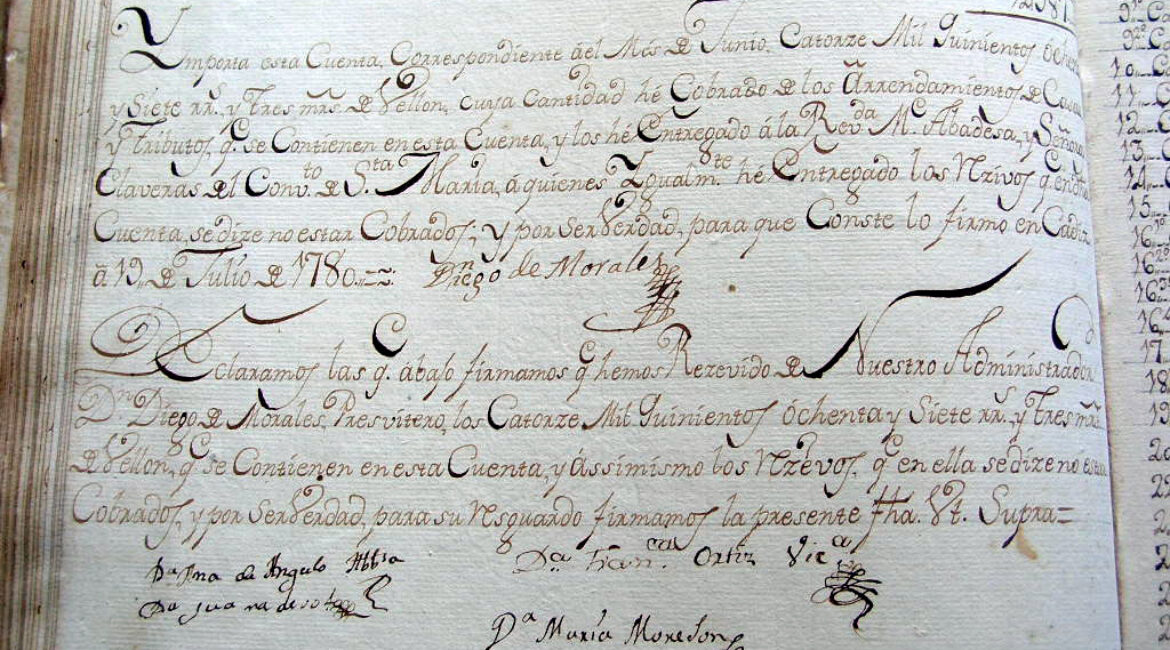 1458
Ymporta esta Cuenta, Correspondiente áel Més de Junio, Catorze Mil Quinientos óchen
y Siete rrs. y tres mrs. de Vellon, cuya Cantidad hé Cobrado de los Arrendamientos de Casas
y Tributos, q.e se Contienen en esta Cuenta, y los hé Entregado á la Rev.da M.e Abadesa, y Señoras
Claveras del Conv.to de S.ta Maria, á quienes Ygualm.te hé Entregado los Rzivos q.e en dha
Cuenta, se dize no estar Cobrados; y por ser Verdad, para que Conste lo firmo en Cadiz
á 19,, de Julio de 1780.
D.n Diego de Morales
Declaramos las q.e ábajo firmamos q.e hemos Rezevido de Nuestro Administrador
D.n Diego de Morales, Presvitero, los Catorze Mil Quinientos óchenta y Siete rrs. y tres mrs.
de Vellon, q.e se Contienen en esta Cuenta, y ássimismo los Rzevos, q.e en ella se dize no estar
Cobrados, y por ser Verdad, para su Resguardo firmamos la presente fha. Vt. Supra=
D.a Ana de Angulo Abb.sa
D.a Fran.ca Ortiz Vic.a
D.a Juana de soto
D.a Maria Moreson
10
11
12
13
14
15
16
17
18